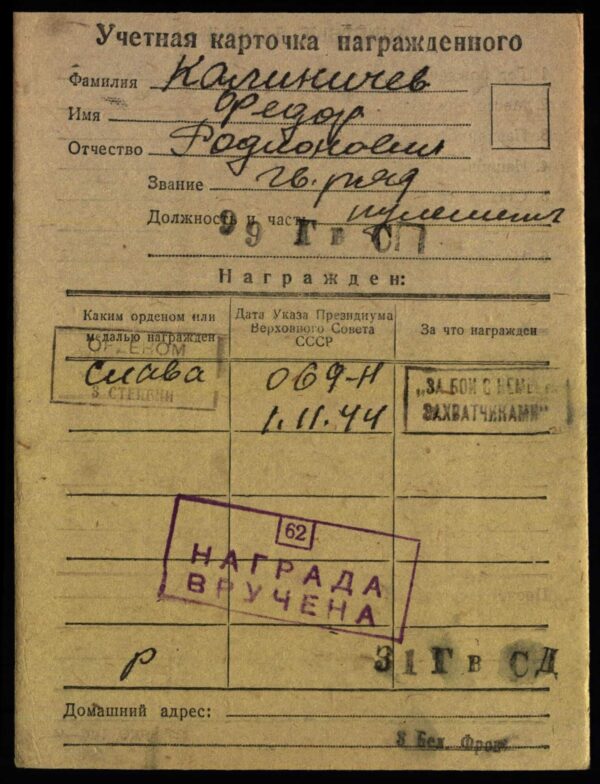 Учетная карточка награжденного
Фамилия Калиничев
Имя Федор
Отчество Родионович
Звание гв. ряд
Должность и часть пулеметч
99 Гв СП
Награжден:
Каким орденом или медалью награжден
Дата Указа Президиума Верховного Совета СССР
За что награжден
ОРДЕНОМ
Слава
3 СТЕПЕНИ
069-Н
1.11.44
„ЗА БОИ С НЕМЕ
ЗАХВАТЧИКАМИ"
62
НАГРАДА
ВРУЧЕНА
Р
31 Гв СД
Домашний адрес:
3 Бел. Фронт